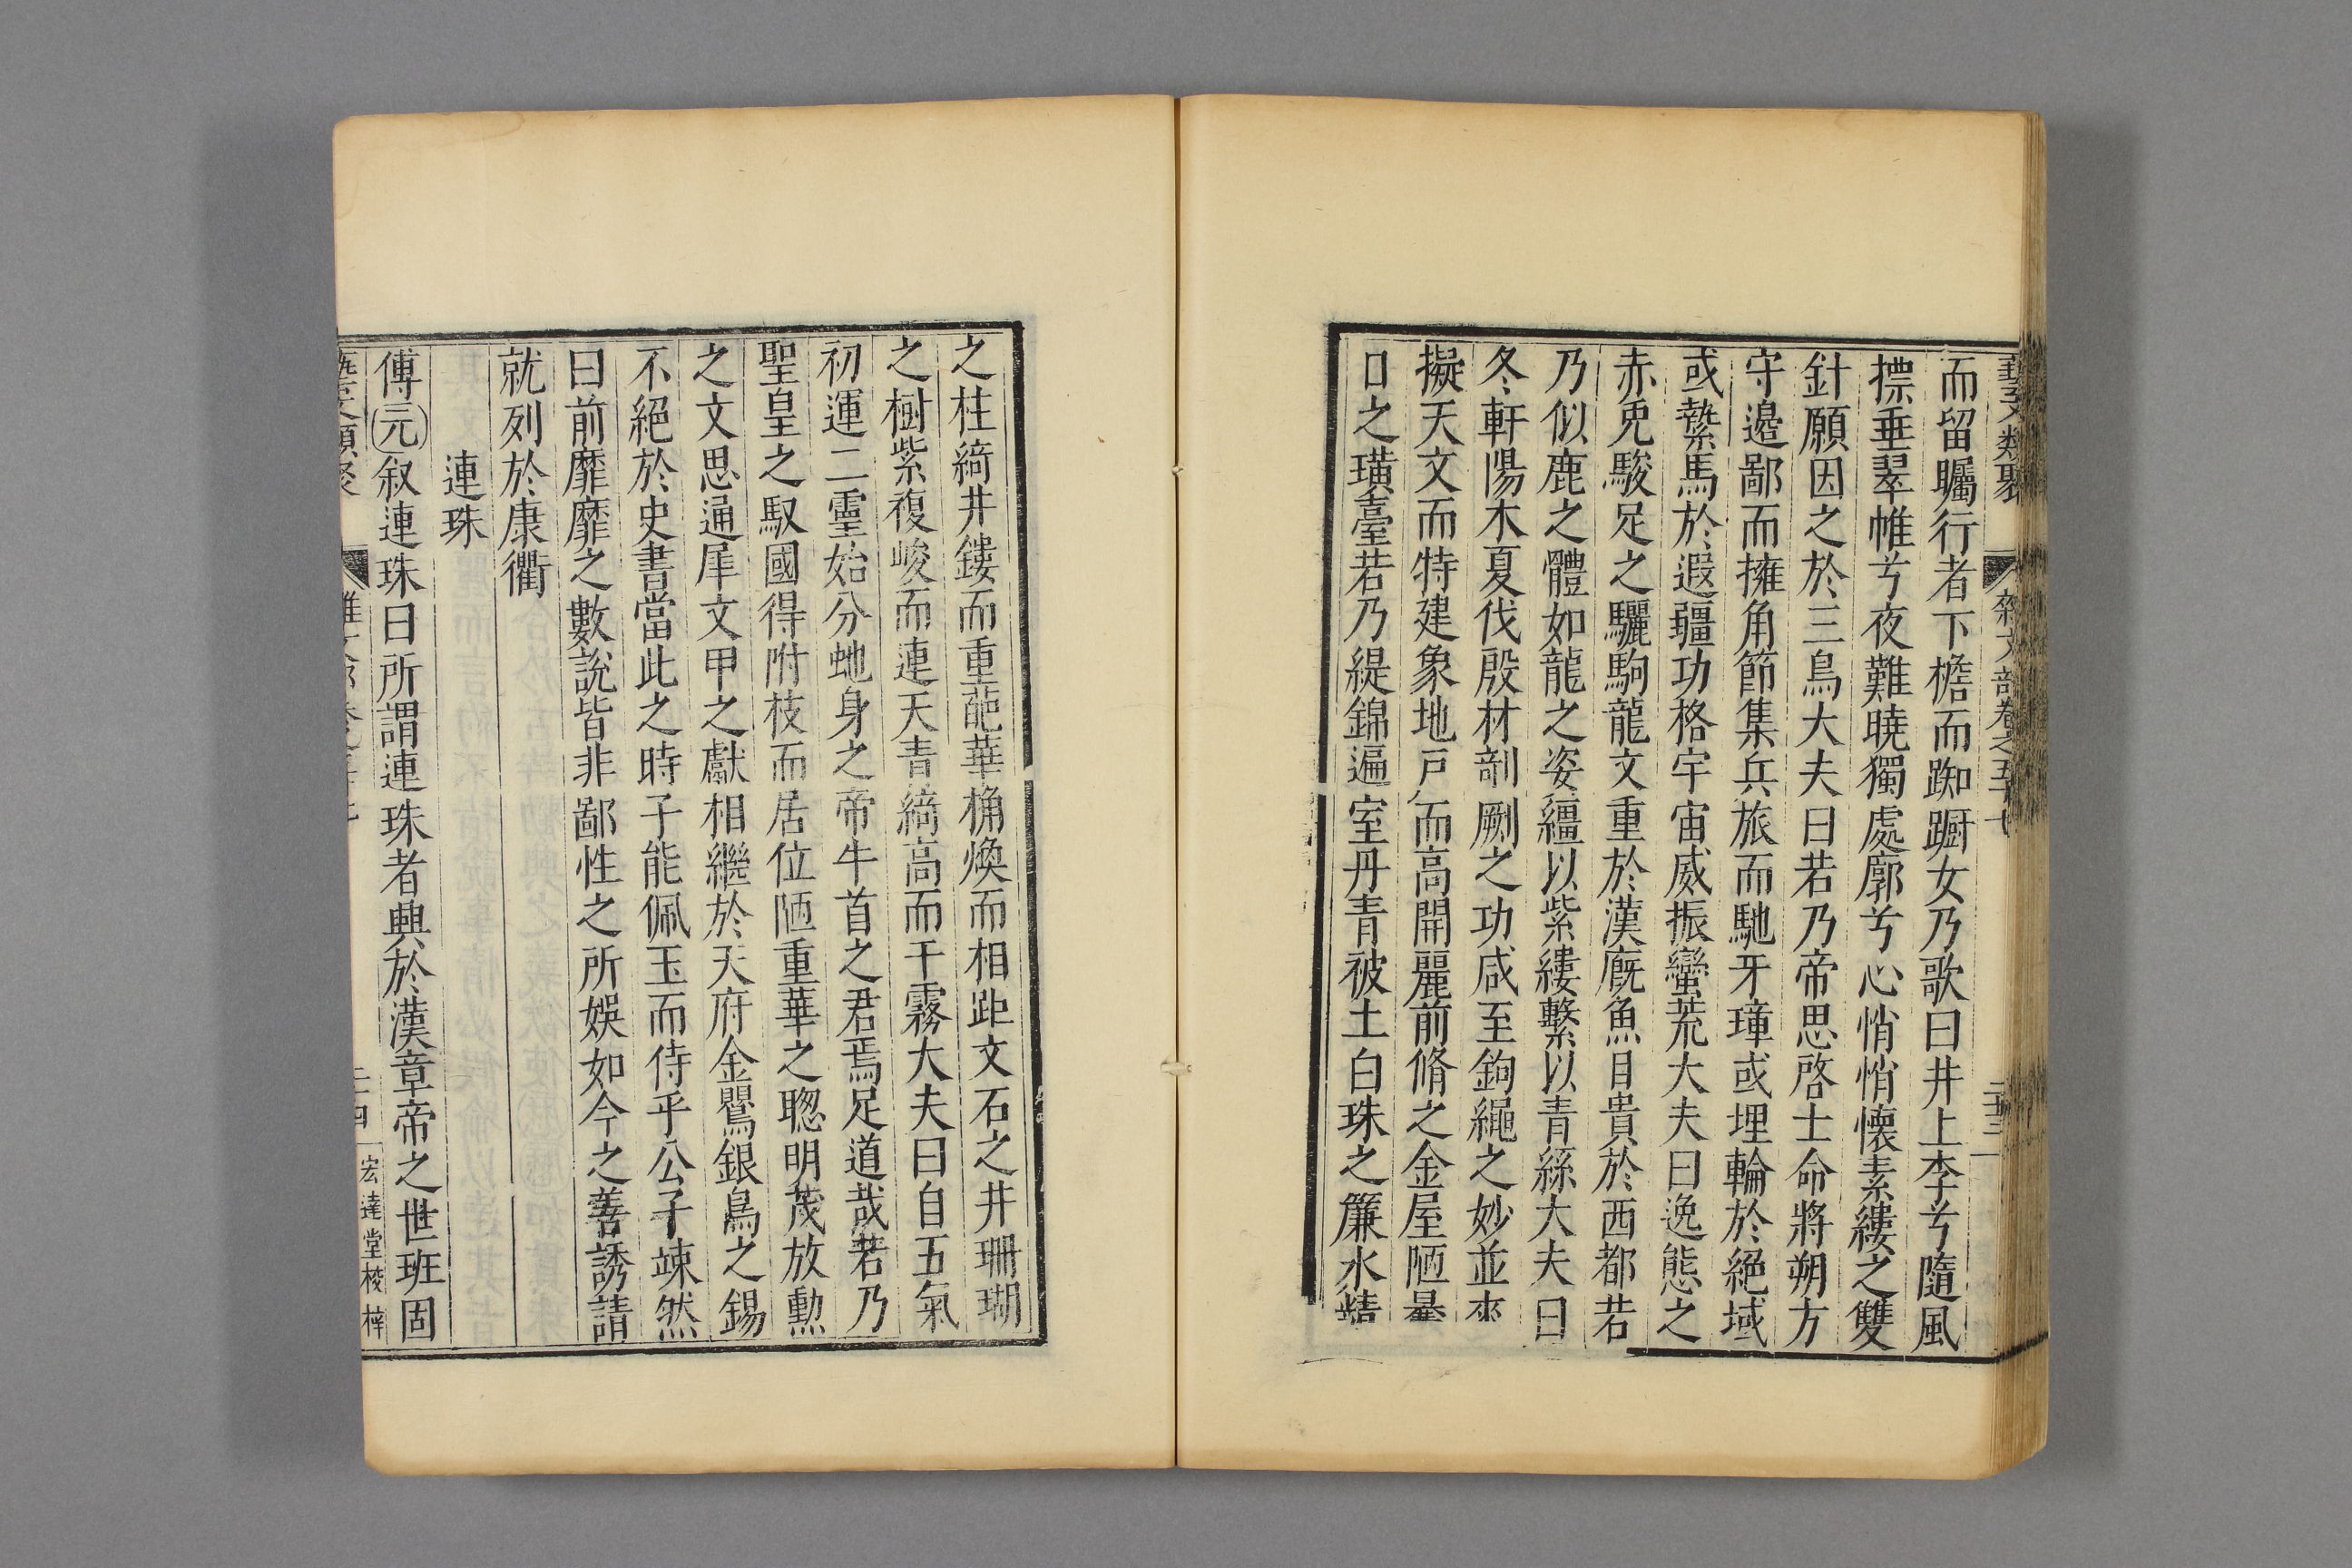 藝文類聚 雜文部卷之五十七 二十三
而留矚行者下檐而踟躕女乃歌曰井上李兮隨風
摽垂翠帷兮夜難曉獨處廓兮心悄悄懷素縷之雙
針願因之於三鳥大夫曰若乃帝思啓士命將朔方
守邊鄙而擁角節集兵旅而馳牙璋或埋輪於絕域
或縶馬於遐疆功格宇宙威振蠻荒大夫曰逸態之
赤兎駿足之驪駒龍文重於漢廐魚目貴於西都若
乃似鹿之體如龍之姿繮以紫縷繫以青絲大夫曰
冬軒陽木夏伐殷材剞劂之功咸至鉤繩之妙並來
擬天文而特建象地戸而高開麗前脩之金屋陋暴
口之璜臺若乃緹錦遍室丹青被土白珠之簾水精
之柱綺井鏤而重葩華桷煥而相距文石之井珊瑚
之樹紫複峻而連天青綺高而干霧大夫曰自五氣
初運二靈始分虵身之帝牛首之君焉足道哉若乃
聖皇之馭國得附枝而居位陋重華之聦明茂放勳
之文思通犀文甲之獻相繼於天府金鸎銀鳥之錫
不絕於史書當此之時子能佩玉而侍乎公子竦然
曰前靡靡之數說皆非鄙性之所娛如今之善誘請
就列於康衢
連珠
傅元叙連珠曰所謂連珠者興於漢章帝之世班固
藝文類聚
二十四 宏達堂校梓